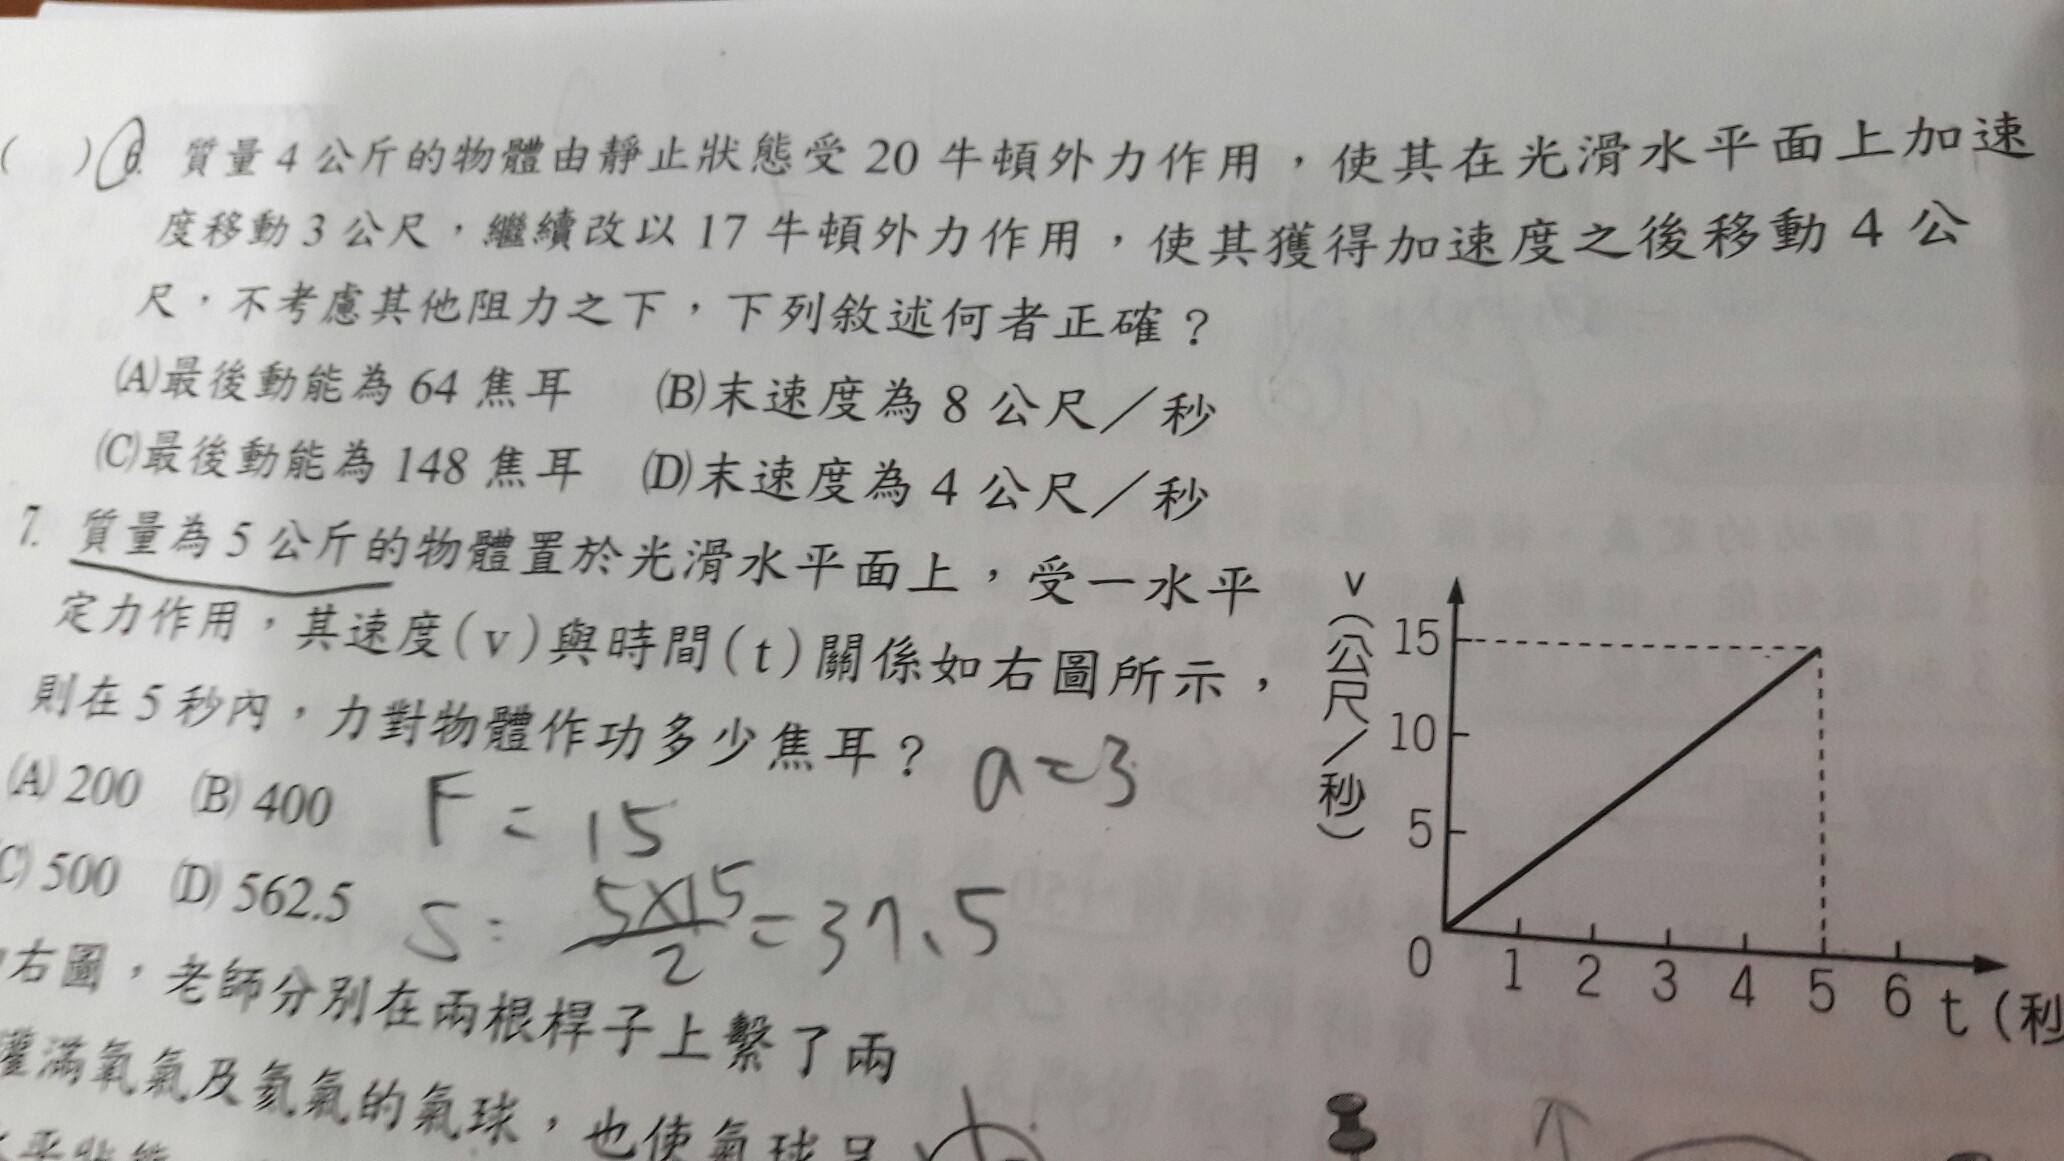 ( ) 6. 質量 4 公斤的物體由靜止狀態受 20 牛頓外力作用,使其在光滑水平面上加速
度移動 3 公尺,繼續改以 17 牛頓外力作用,使其獲得加速度之後移動 4 公
尺,不考慮其他阻力之下,下列敘述何者正確?
(A)最後動能為 64 焦耳 (B)末速度為 8 公尺/秒
(C)最後動能為 148 焦耳 (D)末速度為 4 公尺/秒
7. 質量為 5 公斤的物體置於光滑水平面上,受一水平
定力作用,其速度(v)與時間(t)關係如右圖所示,
則在 5 秒內,力對物體作功多少焦耳?
a=3
(A) 200 (B) 400
F=15
(C) 500 (D) 562.5
S= 5×15/2 =37.5
v(公尺/秒)
15
10
5
0 1 2 3 4 5 6 t(秒
右圖,老師分別在兩根桿子上繫了兩
灌滿氧氣及氦氣的氣球,也使氣球呈